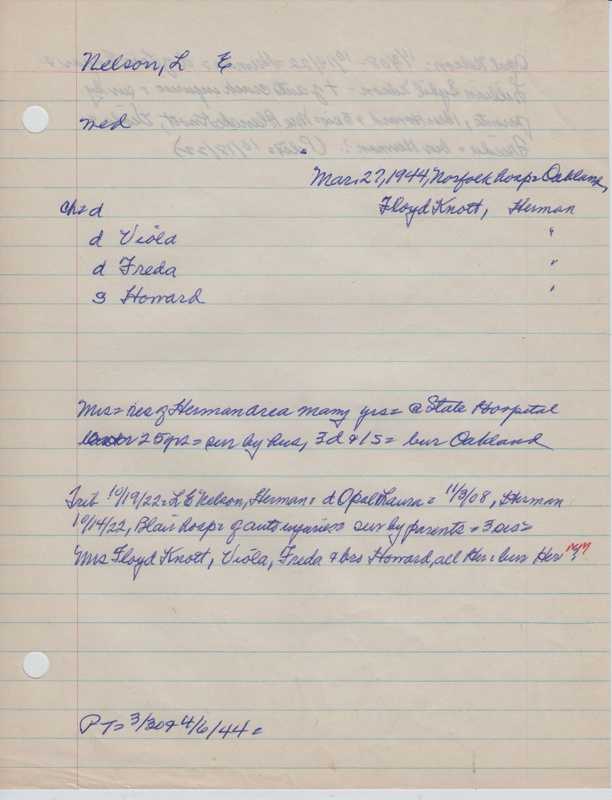 Nelson, L E
wed
Mar. 27, 1944, Norfolk hosp = Oakland,
Ch = d Floyd Knott, Herman
d Viola "
d Freda "
s Howard "
Mrs = res of Herman area many yrs = @ State Hospital
25 yrs = sur by hus, 3 d & 1 s = bur Oakland
Trib 10/19/22 = L E Nelson, Herman = d Opal Laura = 11/3/08, Herman
10/14/22, Blair hosp = of auto injuries sur by parents = 3 sis =
Mrs Floyd Knott, Viola, Freda & bro Howard, all Her = bur Her ?
PT = 3/30 & 4/6/44 =